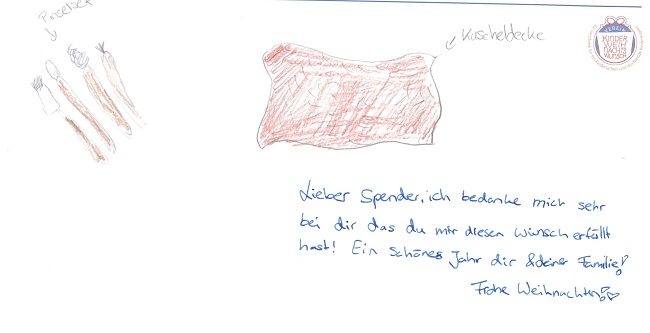 Pinselset
Kuscheldecke
VEREIN
KINDER
WEIH
NACHTS
WUNSCH
Lieber Spender, ich bedanke mich sehr
bei dir das du mir diesen Wunsch erfüllt
hast! Ein schönes Jahr dir & deiner Familie!
Frohe Weihnachten!